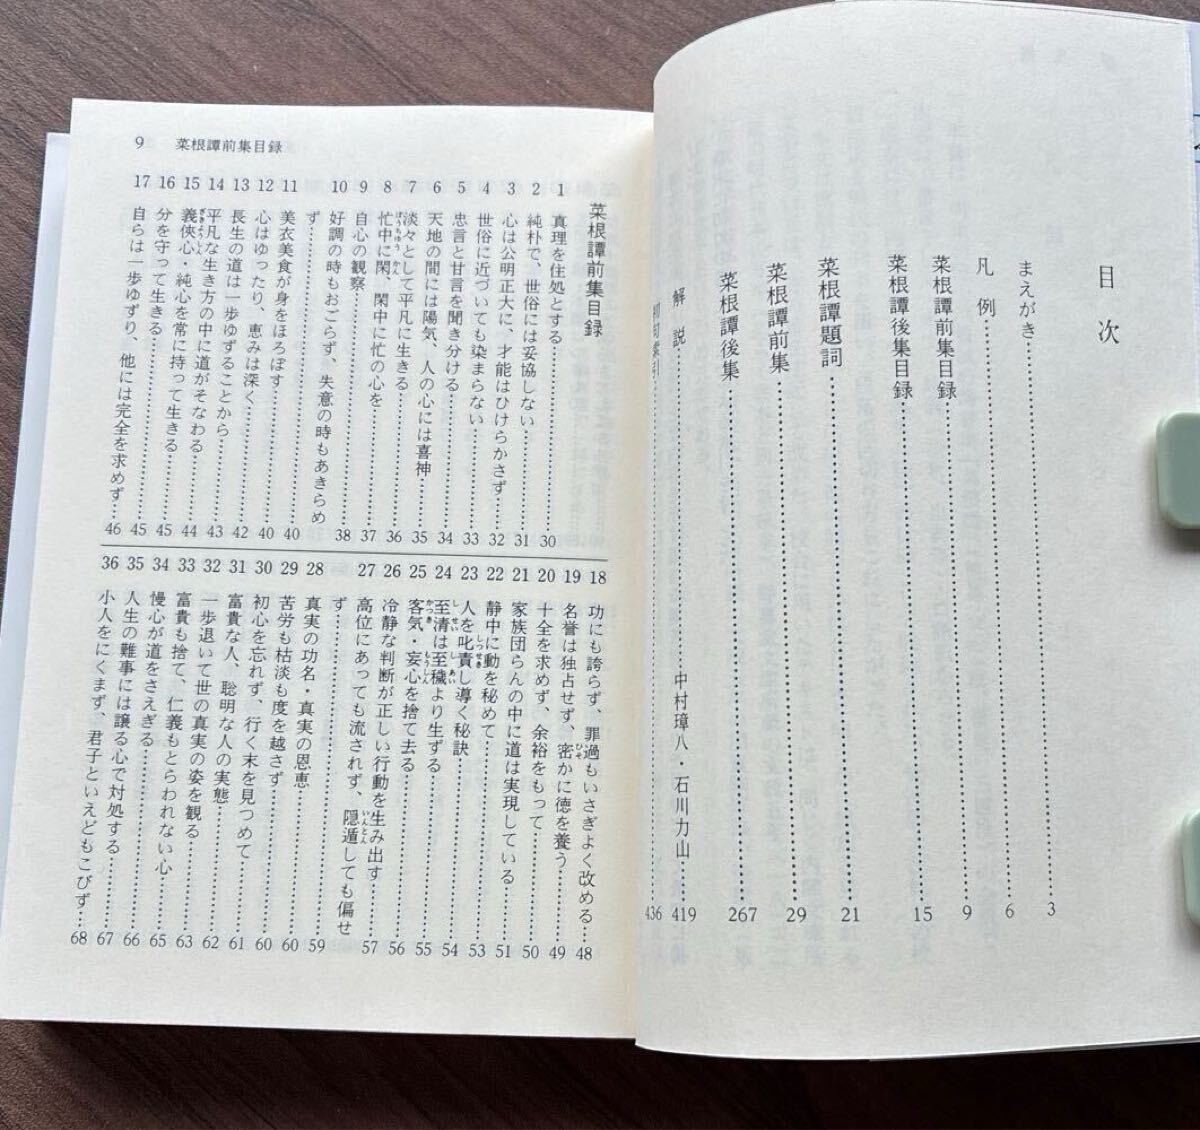 目次
まえがき……3
凡例……6
菜根譚前集目録……9
菜根譚後集目録……15
菜根譚題詞……21
菜根譚前集……29
菜根譚後集……267
解説……中村璋八・石川力山……419
初句索引……436
9 菜根譚前集目録
菜根譚前集目録
1 真理を住処とする……30
2 純朴で、世俗には妥協しない……31
3 心は公明正大に、才能はひけらかさず……32
4 世俗に近づいても染まらない……33
5 忠言と甘言を聞き分ける……34
6 天地の間には陽気、人の心には喜神……35
7 淡々として平凡に生きる……36
8 忙中に閑、閑中に忙の心を……37
9 自心の観察……37
10 好調の時もおごらず、失意の時もあきらめ
ず……38
11 美衣美食が身をほろぼす……40
12 心はゆったり、恵みは深く……40
13 長生の道は一歩ゆずることから……42
14 平凡な生き方の中に道がそなわる……43
15 義俠心・純心を常に持って生きる……44
16 分を守って生きる……45
17 自らは一歩ゆずり、他には完全を求めず……46
18 功にも誇らず、罪過もいさぎよく改める……48
19 名誉は独占せず、密かに徳を養う……49
20 十全を求めず、余裕をもって……50
21 家族団らんの中に道は実現している……51
22 静中に動を秘めて……52
23 人を叱責し導く秘訣……53
24 至清は至穢より生ずる……54
25 客気・妄心を捨て去る……55
26 冷静な判断が正しい行動を生み出す……56
27 高位にあっても流されず、隠遁しても偏せ
ず……57
28 真実の功名・真実の恩恵……59
29 苦労も枯淡も度を越さず……60
30 初心を忘れず、行く末を見つめて……60
31 富貴な人、聡明な人の実態……61
32 一歩退いて世の真実の姿を観る……62
33 富貴も捨て、仁義もとらわれない心……63
34 慢心が道をさえぎる……65
35 人生の難事には譲る心で対処する……66
36 小人をにくまず、君子といえどもこびず……68